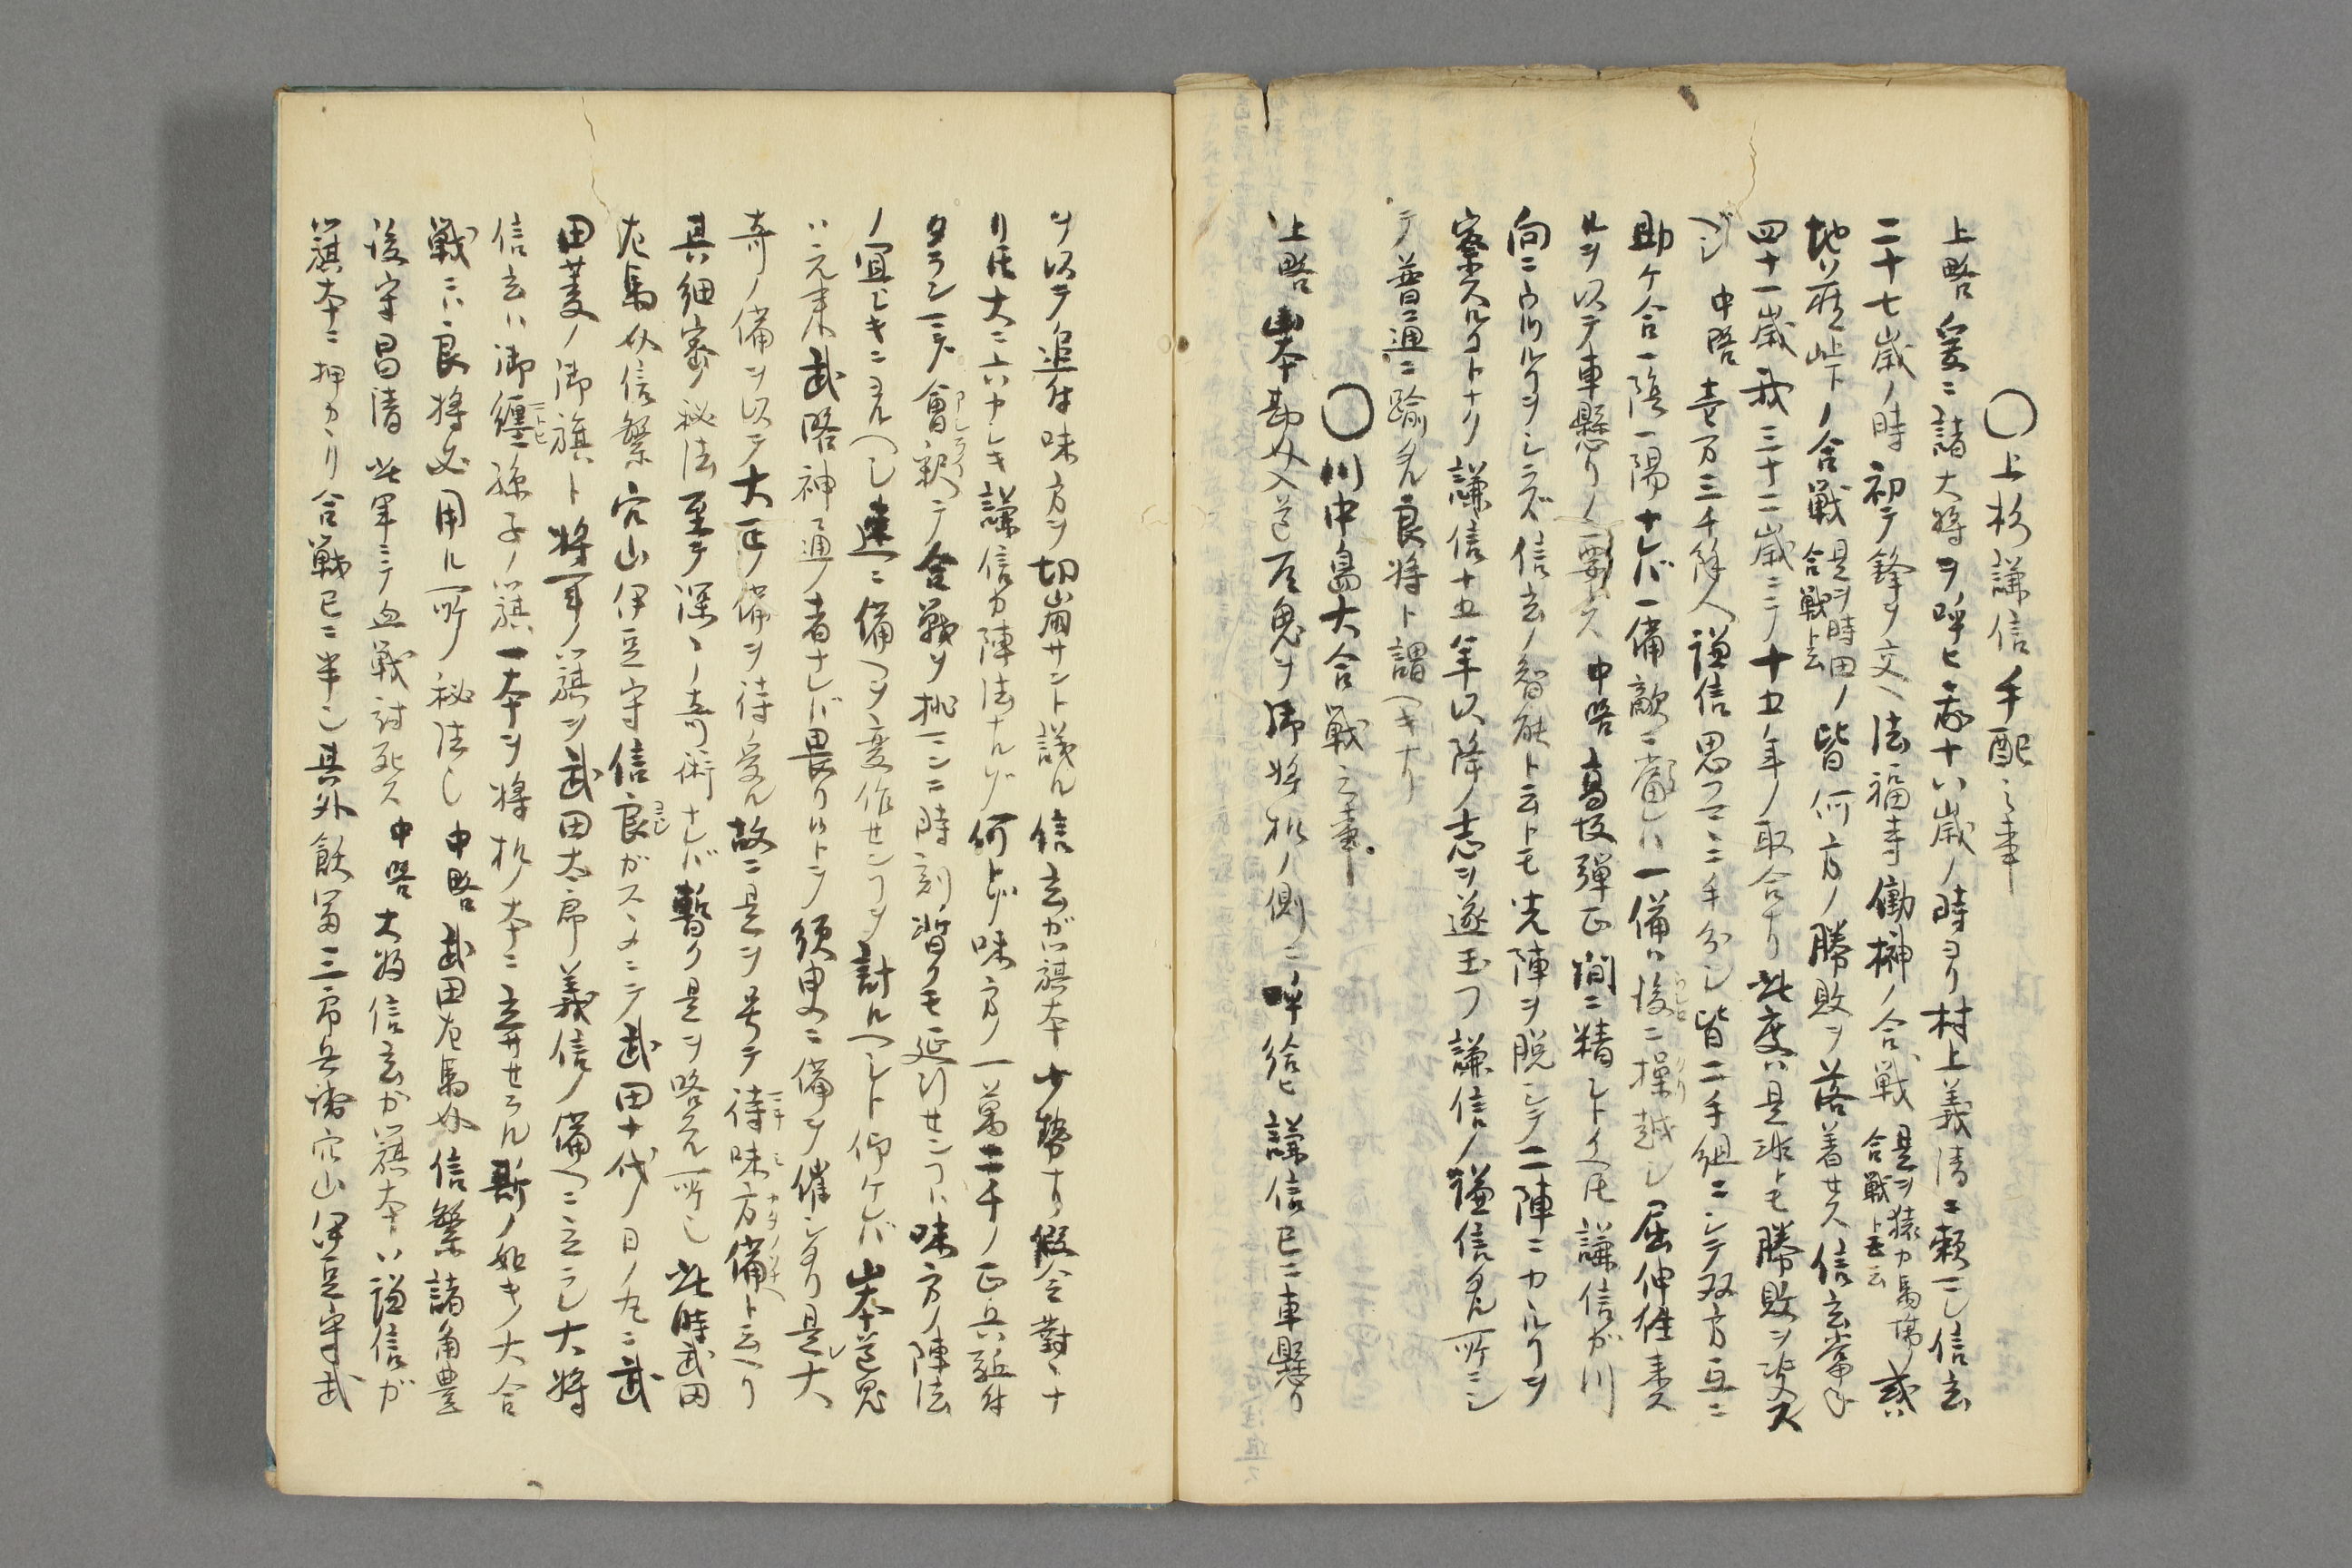 〇上杉謙信手配之事
上略爰ニ諸大将ヲ呼ヒ我十八歳ノ時ヨリ村上義清ニ頼マレ信玄
二十七歳ノ時初テ鋒ヲ交ヘ法福寺働榊ノ合戦是ヲ猿カ馬場ノ合戦ト云云或ハ
地蔵峠下ノ合戦是ヲ時田ノ合戦ト云皆何方ノ勝敗ヲ落着セス信玄当年
四十一歳我三十二歳ニテ十五年ノ取合ナリ此度ハ是非トモ勝敗ヲ決ス
ベシ中略壱万三千餘人謙信思フマヽニ手分シ皆二手組ニシテ双方互ニ
助ケ合一陰一陽ナレバ一備敵ニ當レハ一備ハ後ニ操越シ屈伸往来ス
ルヲ以テ車懸リノ要トス中略高坂弾正間ニ精シトイヘ圧謙信ガ川
向ニウツルヿヲシラズ信玄ノ智能ト云トモ先陣ヲ脱シテ二陣ニカヽルヿヲ
察スルヿトナリ謙信十五年以降ノ志ヲ遂玉フ謙信ノ謙信タル所ニシ
テ普通ニ踰タル良将ト謂ヘキナリ
〇川中島大合戦之事
上略山本勘介入道道鬼ヲ御将机ノ側ニ呼給ヒ謙信已ニ車懸リ
ヲ以テ追付味方ヲ切崩サント議ル信玄ガ旗本少勢ナリ假令對々ナ
リ圧大ニ六ヶシキ謙信カ陣法ナルゾ何トゾ味方ノ一萬二千ノ正兵馳付
タラン迠ハ會釈テ合戦ヲ挑マンニ時刻暫クモ延引セシヿハ味方ノ陣法
ノ宜シキニヨルヘシ速ニ備ヘヲ変作センヿヲ計ルヘシト仰ケレバ山本道鬼
ハ元来武略神通ノ者ナレバ畏リ候トテ須臾ニ備ヲ催シタリ是大
奇ノ備ヲ以テ大正ノ備ヲ待受ル故ニ是ヲ号テ待味方備ト云ヘリ
其細密ノ秘法至テ深々ノ奇術ナレバ暫ク是ヲ略ル所也此時武田
左馬介信繁穴山伊豆守信良ガスヽメニテ武田十代ノ日ノ丸ニ武
田菱ノ御旗ト将軍ノ旗ヲ武田太郎義信ノ備ヘニ立ラレ大将
信玄ハ御纏孫子ノ旗一本ヲ将机ノ本ニ立サセラル斯ノ如キノ大合
戦ニハ良将必用ル所ノ秘法也中略武田左馬介信繁諸角豊
後守昌清此軍ニテ血戦討死ス中略大将信玄カ旗本ハ謙信ガ
旗本ニ押カヽリ合戦已ニ半也其外飫冨三郎兵衛穴山伊豆守武